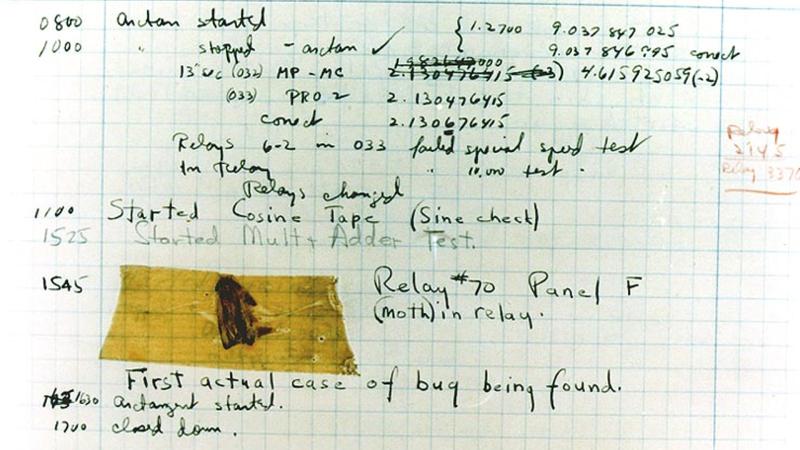 0800 arctan started { 1.2700 9.037 847 025
1000 " stopped - arctan ✓ 9.037 846 995 correct
13"sec (032) MP - MC 2.130476415 (-3) 4.615925059(-2)
(033) PRO 2 2.130476415
correct 2.130676415
Relays 6-2 in 033 failed special speed test
In Relay " 10,000 test .
Relay
2145
Relay 3370
Relays changed
1100 Started Cosine Tape (Sine check)
1525 Started Mult + Adder Test.
1545 Relay #70 Panel F
(moth) in relay.
First actual case of bug being found.
1630 arctangent started.
1700 closed down.